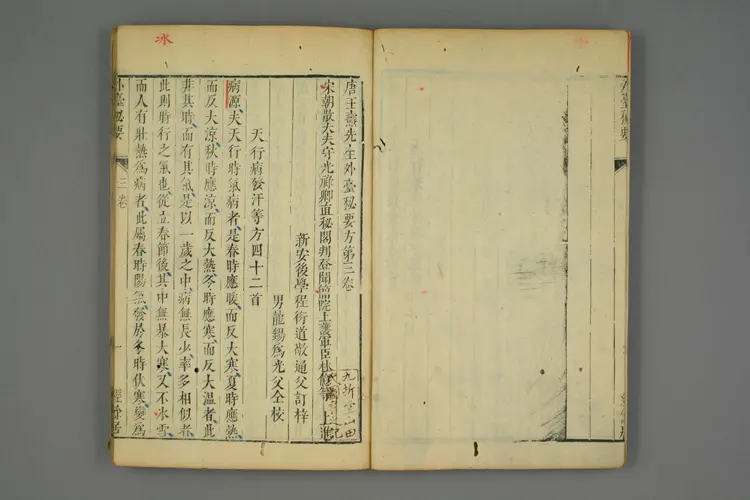 唐王燾先生外臺秘要方第三卷
宋朝散大夫守光祿卿直秘閣判登聞簡院上護軍臣林億等上進
新安後學程衍道敬通父訂梓
男龍錫爲光父仝校
天行病發汗等方四十二首
病源夫天行時氣病者是春時應暖而反大寒夏時應熱
而反大涼秋時應涼而反大熱冬時應寒而反大溫者此
非其時而有其氣是以一歲之中病無長少率多相似者
此則時行之氣也從立春節後其中無暴大寒又不冰雪
而人有壯熱爲病者此屬春時陽氣發於冬時伏寒變爲
外臺秘要
三卷
一
經餘居
冰
九折堂山田
外臺秘要